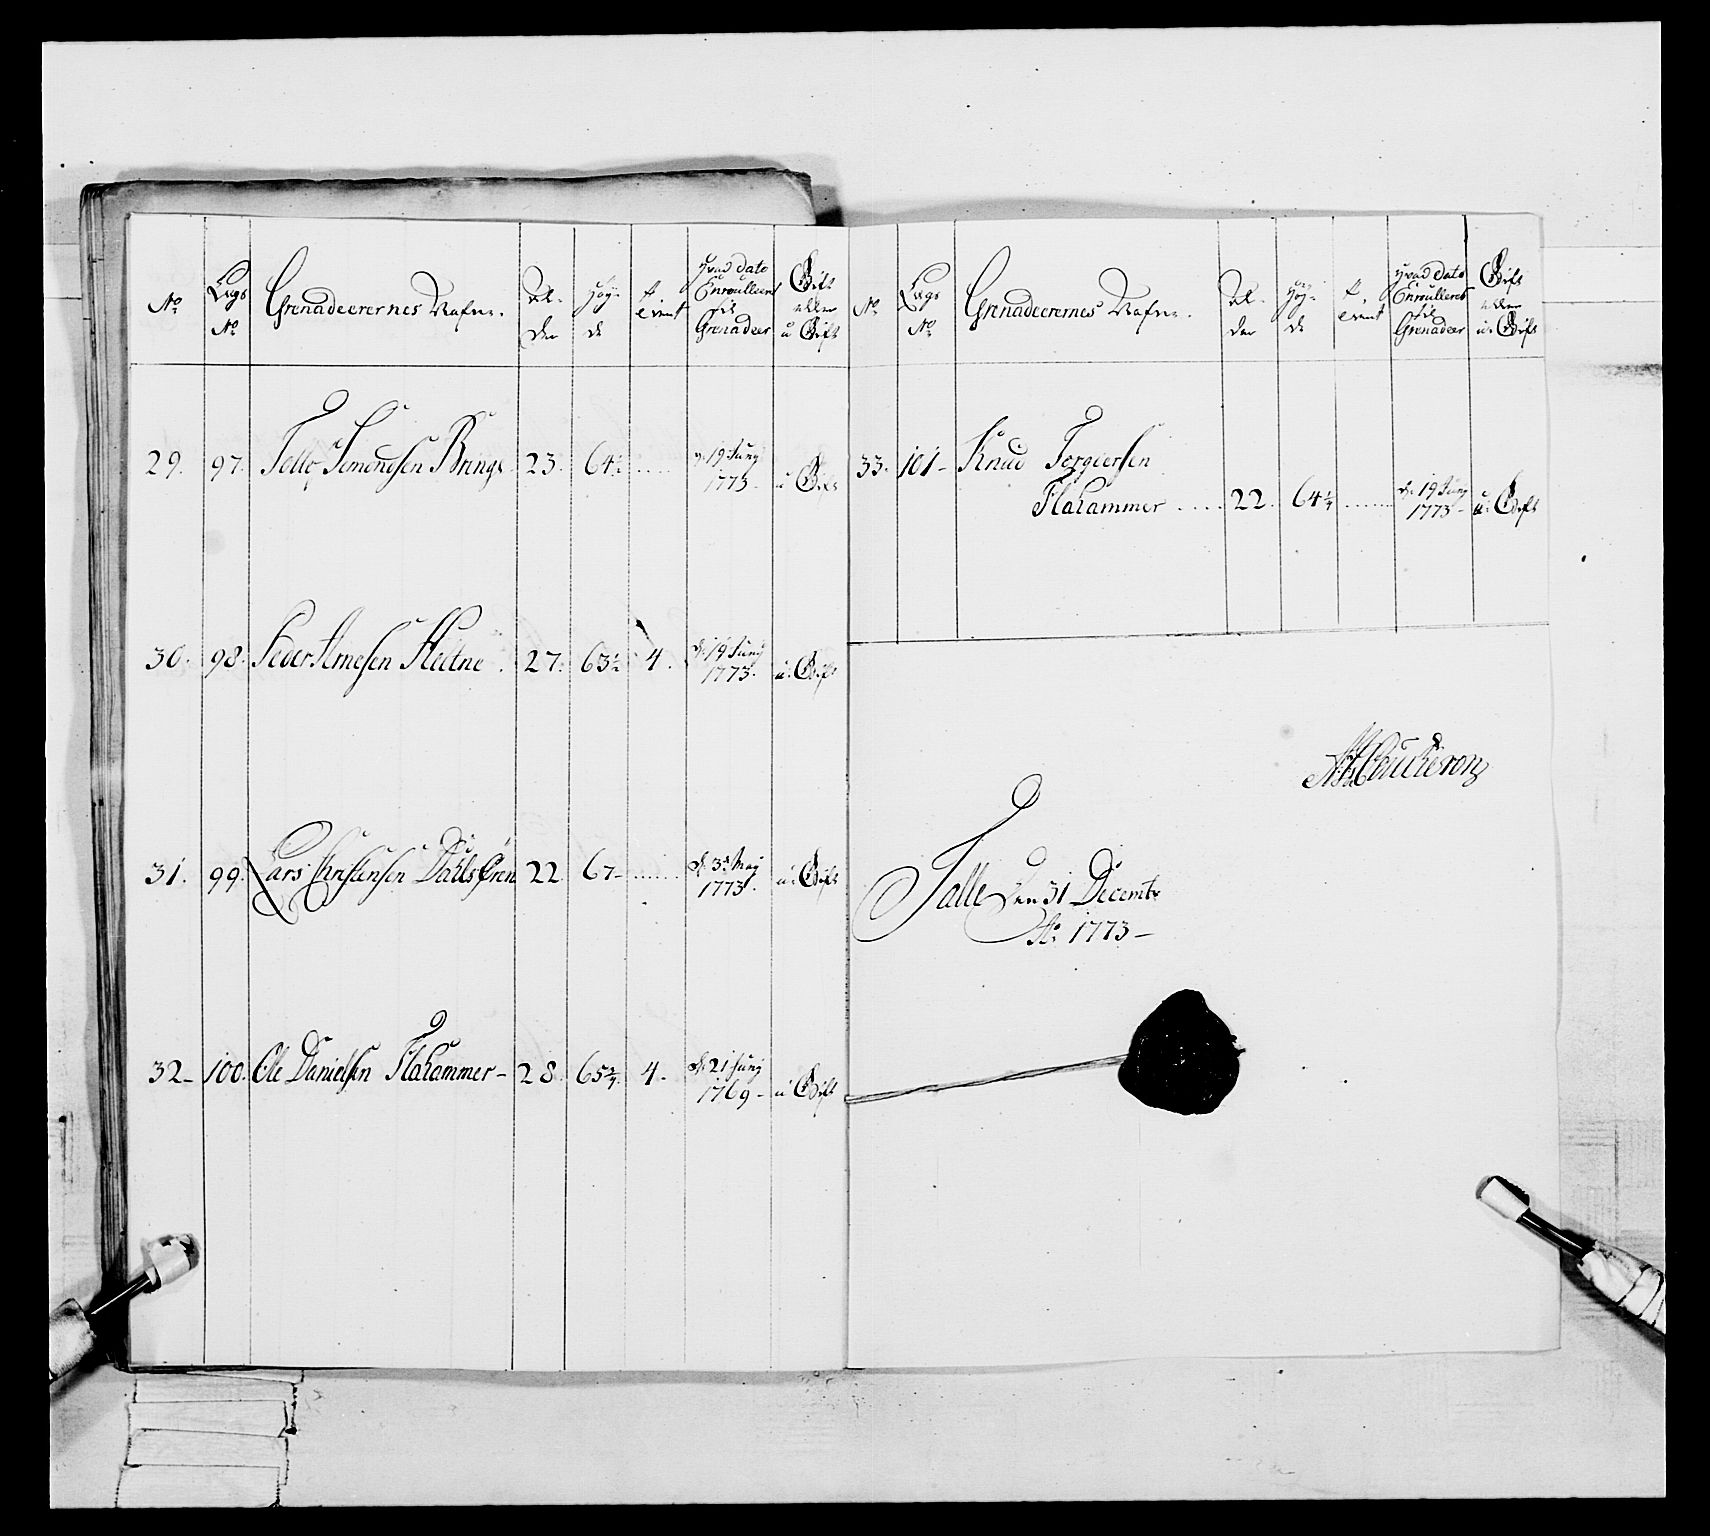 No
Lægs
No
Grenadeerernes Nafne.
Al-
der
Høy-
de
Hvad dato
Enroulleeret
til
Grenadeer
Gift
eller
u Gift
29. 97. Simonsen Brings 23. 64½ ..... d: 19 Junÿ
1773 u Gift
30. 98. Peder Arnesen Hiitne. 27. 63½ 4. d: 19 Junÿ
1773. u: Gift
31. 99. Lars Christensen 22. 67- ....... d: 3d Maÿ
1773. u: Gift
32- 100. Ole Danielsen Flahammer- 28. 65¾ 4. d: 21 Junÿ
1769- u: Gift
No
Lægs
No
Grenadeerernes Nafne.
Al-
der
Høy-
de
Hvad dato
Enroulleret
til
Grenadeer
Gift
eller
u: Gift
33. 101- Knud Torgiersen
Flahammer .... 22. 64¼ ....... d: 19 Junÿ
1773- u: Gift
Coucheron
den 31 Decembr
Ao 1773-